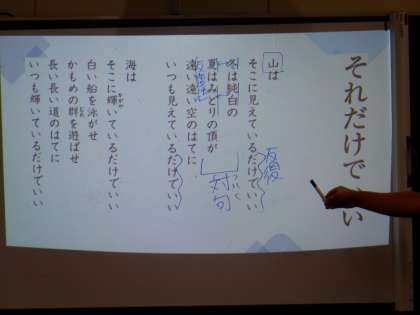 それだけでいい
山は
そこに見えているだけでいい
反復
冬は純白の
夏はみどりの頂が
対句
遠い遠い空のはてに
いつも見えているだけでいい
海は
そこに輝いているだけでいい
白い船を泳がせ
かもめの群を遊ばせ
長い長い道のはてに
いつも輝いているだけでいい